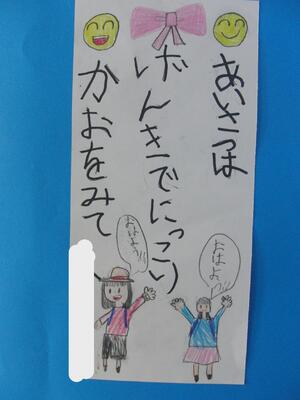 あいさつは
げんきでにっこり
かおをみて
おはよう!!
おはよー!!